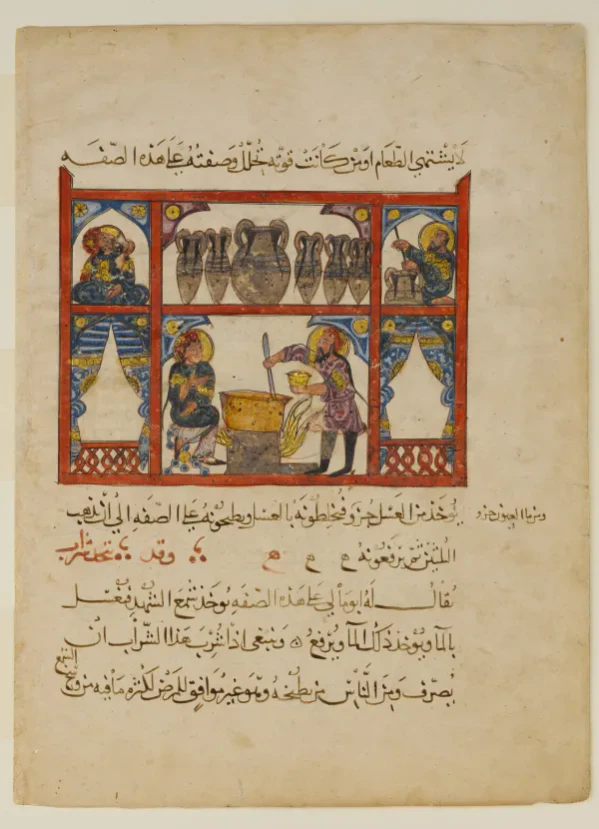 لا يشتهي الطعام او من كانت قوته تحلل وصفته على هذه الصفه
يوخذ من العسل جزو فيخلطونه بالعسل ويطبخونه على الصفه الى ان يذهب
ومن ما العيون جزو
ثم يرفعونه وقد يتخذ شراب
يقال له ابومالي على هذه الصفه يوخذ شمع الشهد فيغسل
بالما ويوخذ ذلك الما ويرفع وينبغي اذا شرب هذا الشراب ان
يصرف ومن الناس من يطبخه وهو غير موافق للمرضى لكثرة ما فيه من
الشمع